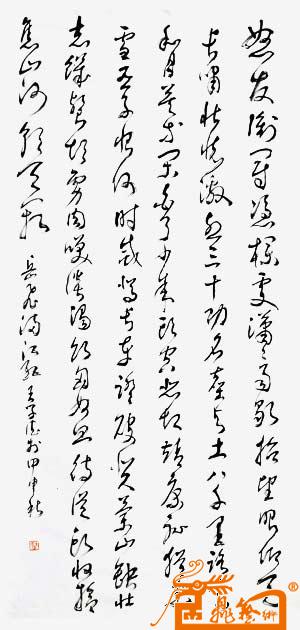 怒发衝冠憑欄處潇々雨歇抬望眼仰天
长啸壯懷激烈三十功名塵与土八千里路雲
和月莫等闲白了少年头空悲切靖康恥猶未
雪臣子恨何时滅驾长车踏破賀蘭山缺壮
志饑餐胡虏肉笑谈渴饮匈奴血待從头收拾
舊山河朝天阙 岳飛满江红 甲申秋